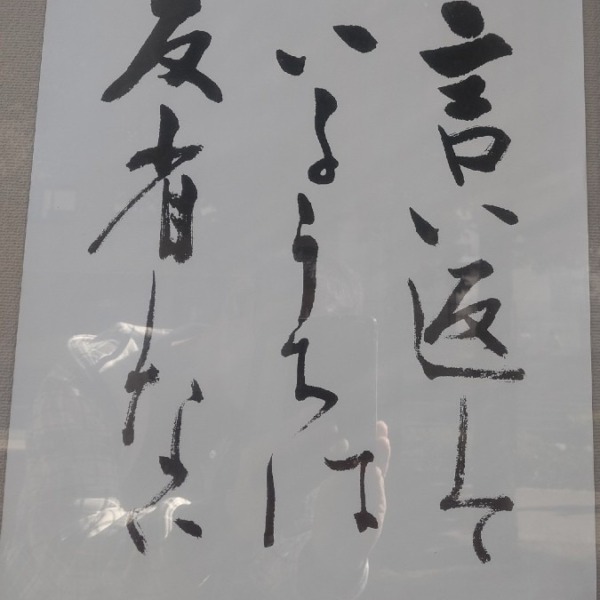 言い返して
いるうちは
反省しない